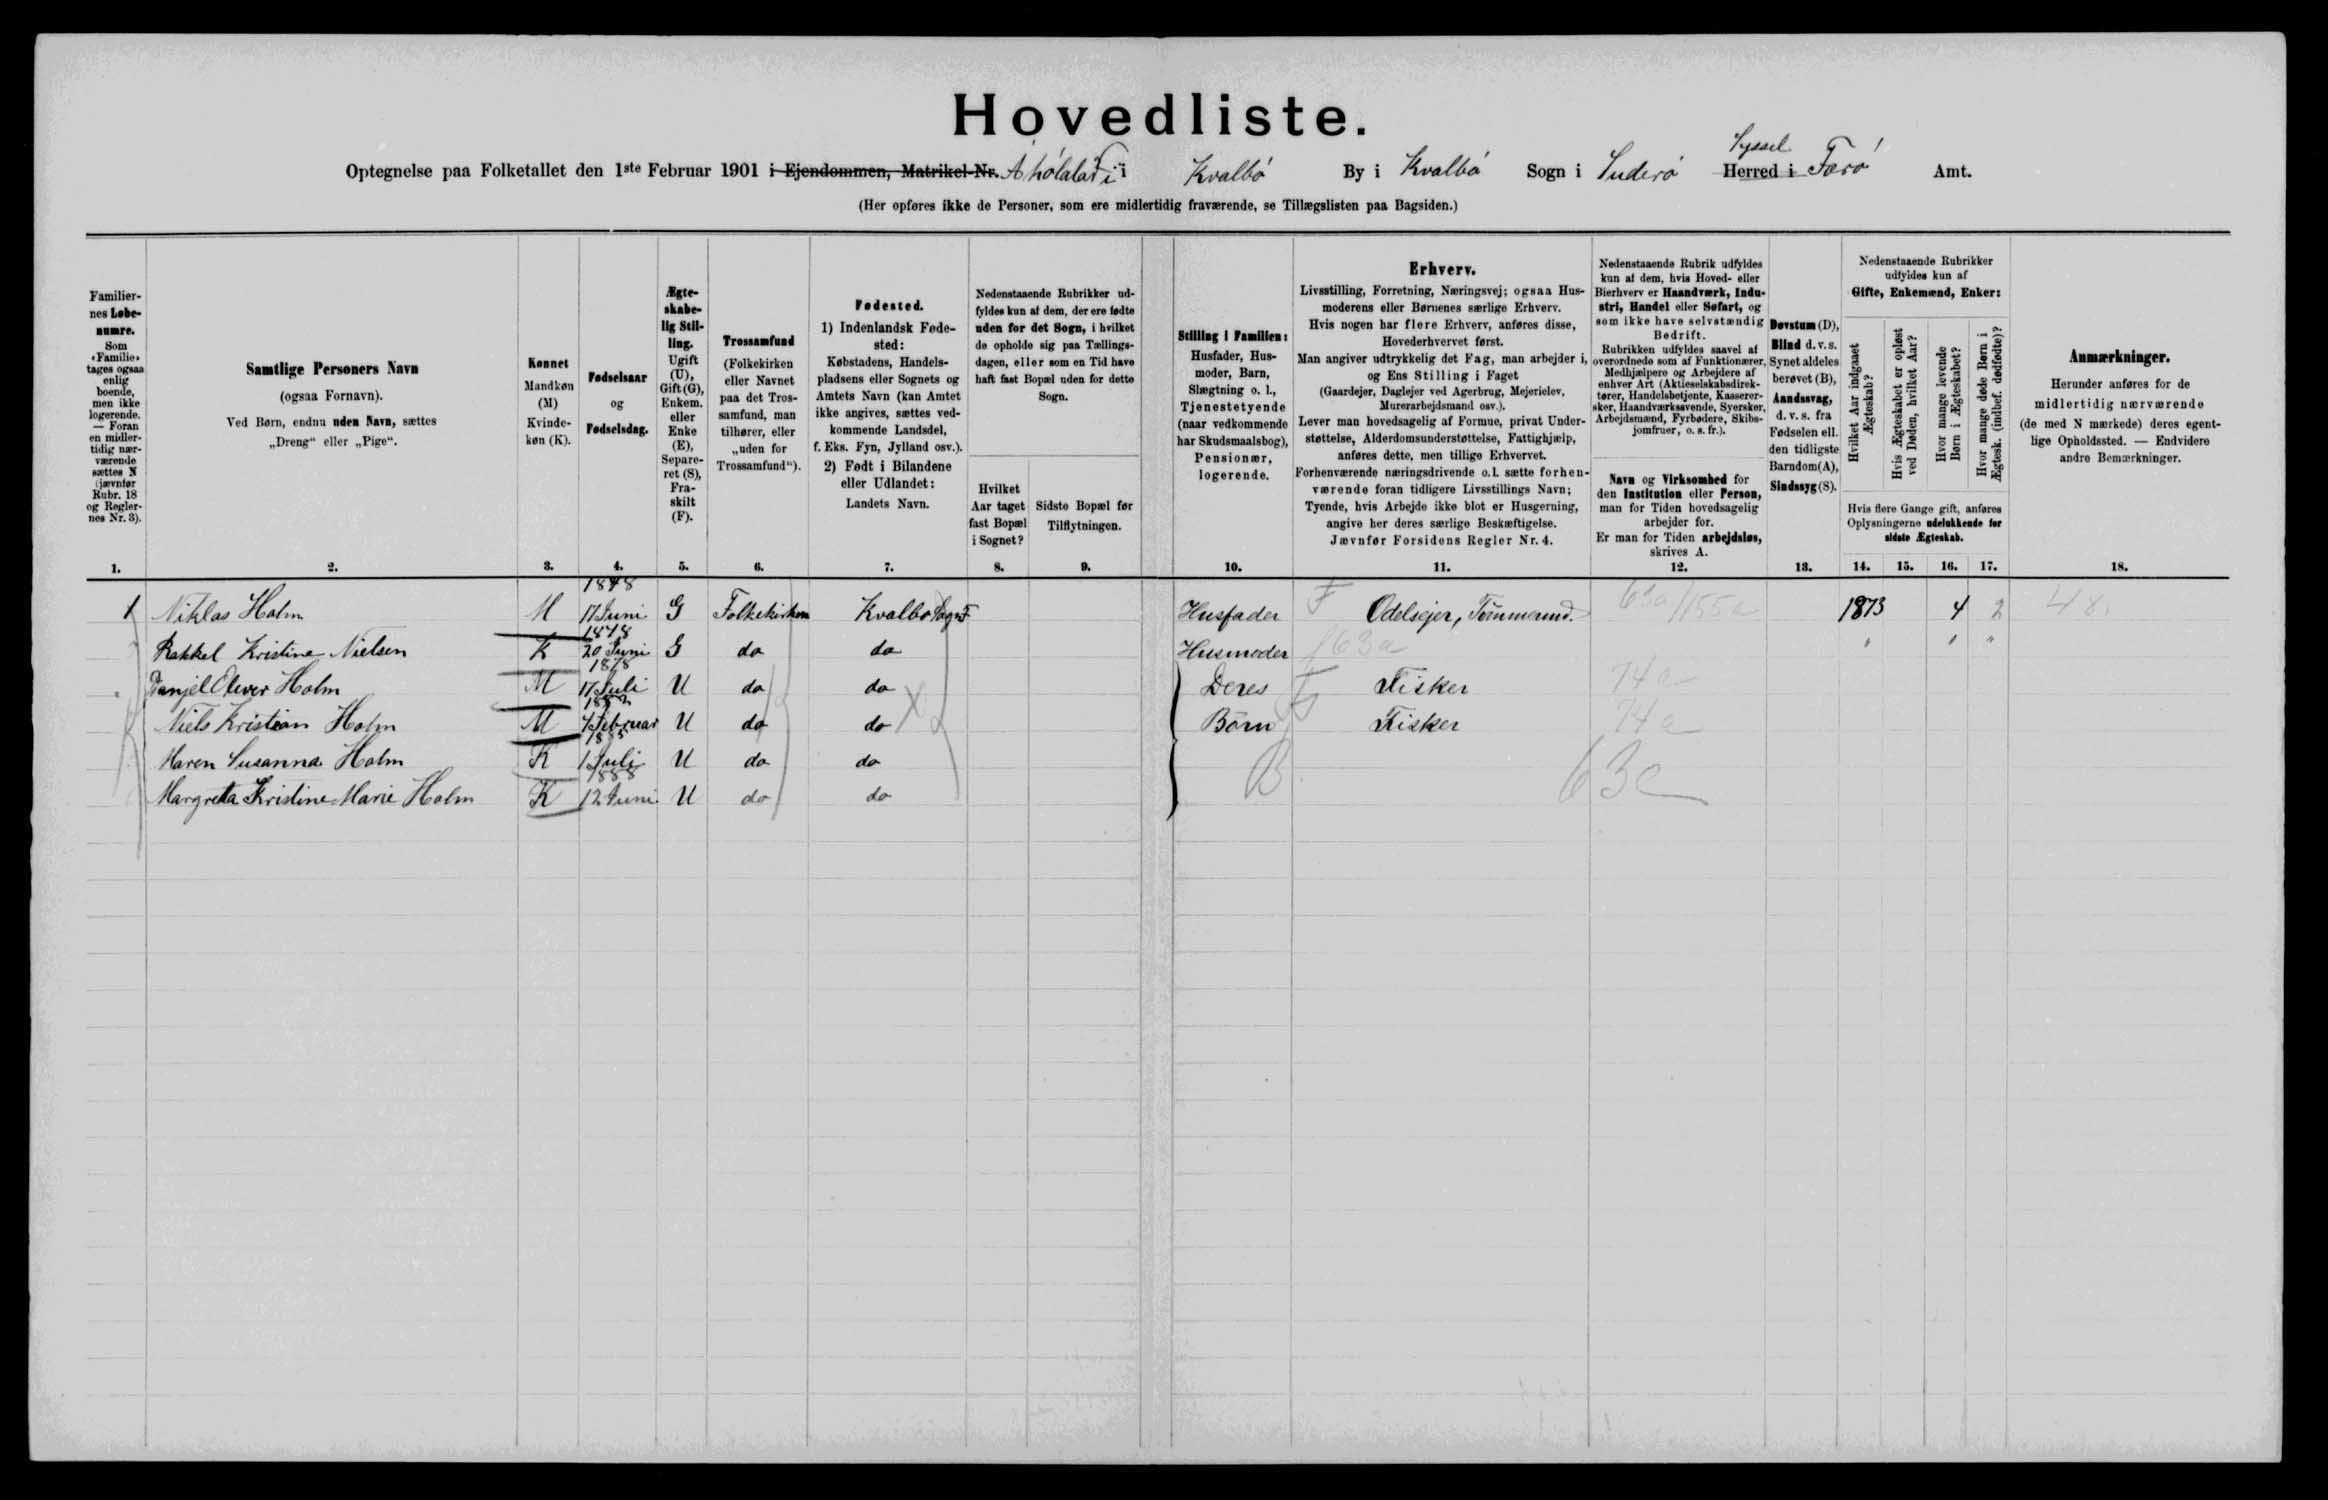 Hovedliste.
Optegnelse paa Folketallet den 1ste Februar 1901 i Ejendommen, Matrikel-Nr. i Kvalbö By i Kvalbö Sogn i Suderö Syssel Herred i Færö Amt.
(Her opføres ikke de Personer, som ere midlertidig fraværende, se Tillægslisten paa Bagsiden.)
Familier-
nes Løbe-
numre.
Som
«Familie»
tages ogsaa
enlig
boende,
men ikke
logerende.
— Foran
en midler-
tidig nær-
værende
sættes N
(jævnfør
Rubr. 18
og Regler-
nes Nr. 3).
1.
Samtlige Personers Navn
(ogsaa Fornavn).
Ved Børn, endnu uden Navn, sættes
„Dreng“ eller „Pige“.
2.
Kønnet
Mandkøn
(M)
Kvinde-
køn (K).
3.
Fødselsaar
og
Fødselsdag.
4.
Ægte-
skabe-
lig Stil-
ling.
Ugift
(U),
Gift (G),
Enkem.
eller
Enke
(E),
Separe-
ret (S),
Fra-
skilt
(F).
5.
Trossamfund
(Folkekirken
eller Navnet
paa det Tros-
samfund, man
tilhører, eller
„uden for
Trossamfund“).
6.
Fødested.
1) Indenlandsk Føde-
sted:
Købstadens, Handels-
pladsens eller Sognets og
Amtets Navn (kan Amtet
ikke angives, sættes ved-
kommende Landsdel,
f. Eks. Fyn, Jylland osv.).
2) Født i Bilandene
eller Udlandet:
Landets Navn.
7.
Nedenstaaende Rubrikker ud-
fyldes kun af dem, der ere fødte
uden for det Sogn, i hvilket
de opholde sig paa Tællings-
dagen, eller som en Tid have
haft fast Bopæl uden for dette
Sogn.
Hvilket
Aar taget
fast Bopæl
i Sognet?
8.
Sidste Bopæl før
Tilflytningen.
9.
Stilling i Familien:
Husfader, Hus-
moder, Barn,
Slægtning o. l.,
Tjenestetyende
(naar vedkommende
har Skudsmaalsbog),
Pensionær,
logerende.
10.
Erhverv.
Livsstilling, Forretning, Næringsvej; ogsaa Hus-
moderens eller Børnenes særlige Erhverv.
Hvis nogen har flere Erhverv, anføres disse,
Hovederhvervet først.
Man angiver udtrykkelig det Fag, man arbejder i,
og Ens Stilling i Faget
(Gaardejer, Daglejer ved Agerbrug, Mejerielev,
Murerarbejdsmand osv.).
Lever man hovedsagelig af Formue, privat Under-
støttelse, Alderdomsunderstøttelse, Fattighjælp,
anføres dette, men tillige Erhvervet.
Forhenværende næringsdrivende o.l. sætte forhen-
værende foran tidligere Livsstillings Navn;
Tyende, hvis Arbejde ikke blot er Husgerning,
angive her deres særlige Beskæftigelse.
Jævnfør Forsidens Regler Nr. 4.
11.
Nedenstaaende Rubrik udfyldes
kun af dem, hvis Hoved- eller
Bierhverv er Haandværk, Indu-
stri, Handel eller Søfart, og
som ikke have selvstændig
Bedrift.
Rubrikken udfyldes saavel af
overordnede som af Funktionærer,
Medhjælpere og Arbejdere af
enhver Art (Aktieselskabsdirek-
tører, Handelsbetjente, Kasserer-
sker, Haandværkssvende, Syersker,
Arbejdsmænd, Fyrbødere, Skibs-
jomfruer, o. s. fr.).
Navn og Virksomhed for
den Institution eller Person,
man for Tiden hovedsagelig
arbejder for.
Er man for Tiden arbejdsløs,
skrives A.
12.
Døvstum (D),
Blind d. v. s.
Synet aldeles
berøvet (B),
Aandssvag,
d. v. s. fra
Fødselen ell.
den tidligste
Barndom (A),
Sindssyg (S).
13.
Nedenstaaende Rubrikker
udfyldes kun af
Gifte, Enkemænd, Enker:
Hvilket Aar indgaaet
Ægteskab?
Hvis Ægteskabet er opløst
ved Døden, hvilket Aar?
Hvor mange levende
Børn i Ægteskabet?
Hvor mange døde Børn i
Ægtesk. (indbef. dødfødte)?
Hvis flere Gange gift, anføres
Oplysningerne udelukkende for
sidste Ægteskab.
14. 15. 16. 17.
Anmærkninger.
Herunder anføres for de
midlertidig nærværende
(de med N mærkede) deres egent-
lige Opholdssted. — Endvidere
andre Bemærkninger.
18.
1 Niklas Holm M 1848 17 Juni G Folkekirken Kvalbö Sogn F Husfader F Odelsejer, Tömmermd. 63a/155a 1873 4 2 48.
Rakkel Kristine Nielsen K 1848 20 Juni G do do Husmoder f 63a " " "
Danjel Oliver Holm M 1878 17 Juli U do do Deres F Fisker 74a
Niels Kristian Holm M Februar U do do Börn Fisker 74a
Maren Susanna Holm K 1885 1 Juli U do do B 63c
Margreta Kristine Marie Holm K 1888 12 Juni U do do